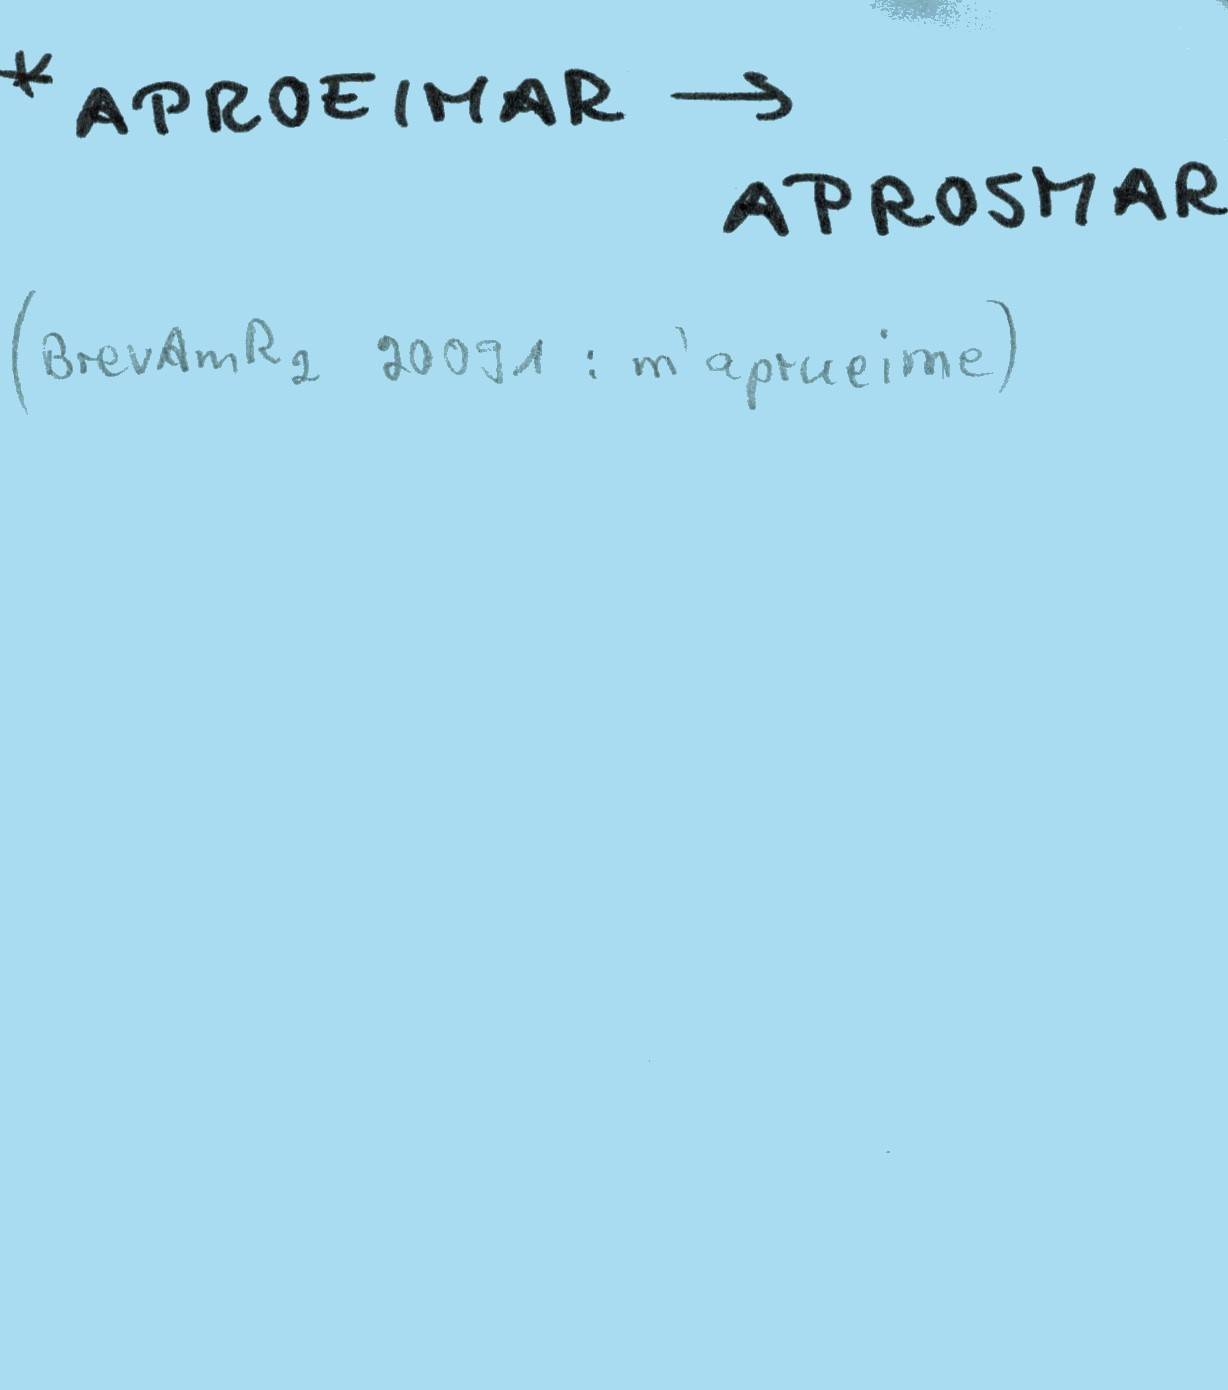 *APROEIMAR →
APROSMAR
(BrevAmR2 20091 : m'aprueime)